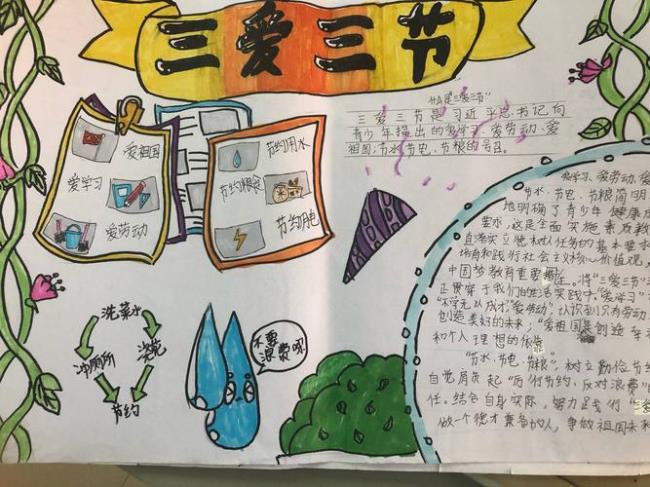 三爱三节
什么是"三爱三节"
三爱三节是习近平总书记向
青少年提出的爱学习、爱劳动、爱
祖国;节水、节电、节粮的号召。
爱祖国
爱学习
爱劳动
节约用水
节约粮食
节约用电
洗菜水
冲厕所
浇花
节约
不要
浪费哦
爱学习、爱劳动、爱
节水、节电、节粮简明
地明确了青少年健康成
要求,这是全面实施素质教
直落实立德树人任务的基本要求
培育和践行社会主义核心价值观,
中国梦教育重要 在。将"三爱三节"
正贯穿于我们的生活实践中。"爱学习"
"不学无以成才";"爱劳动",认识到只有劳动
创造美好的未来;"爱祖国 创造
和个人理想的依靠
"节水、节电、节粮",树立勤俭节约
自觉肩负起 厉行节约、反对浪费
任。结合自身实际,努力
做一个德才兼备的人,争做祖国未来